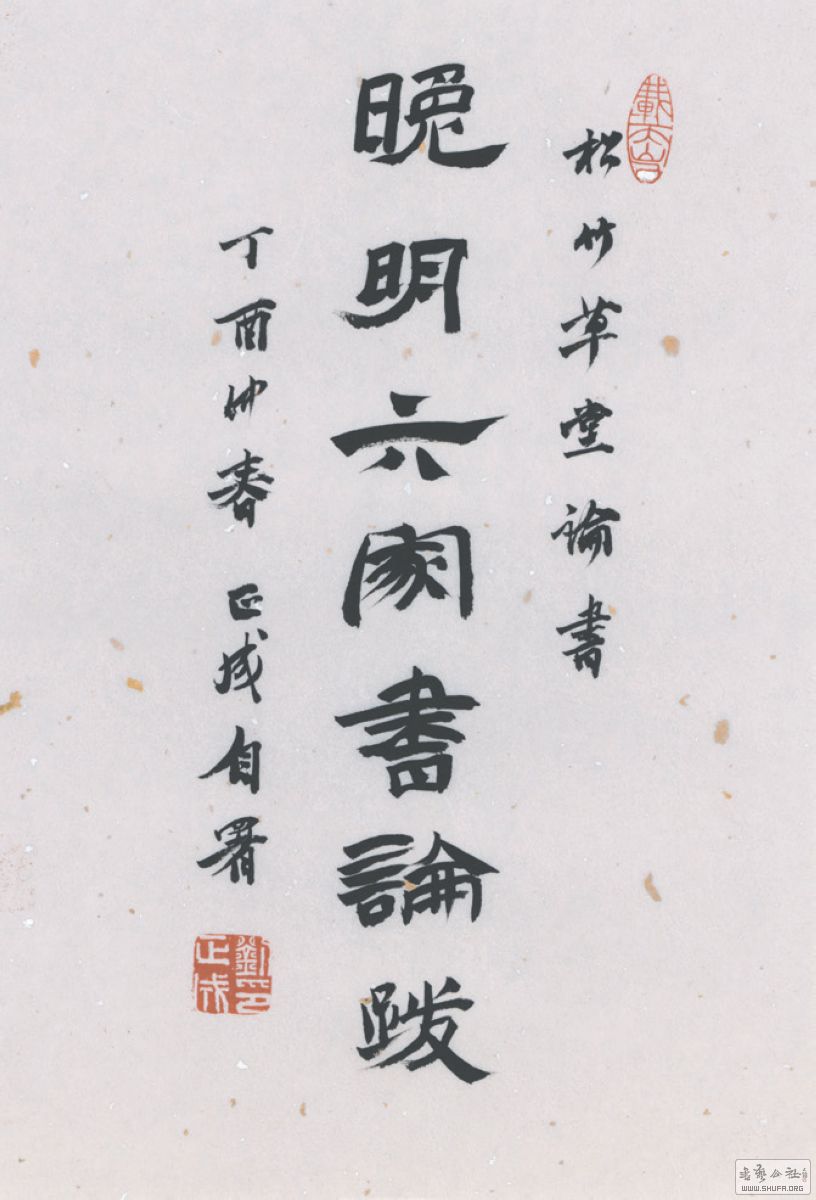 松竹草堂論書
晚明六家書論跋
丁酉仲春 正成自署
劉印正成
書藝公社
WWW.SHUFA.ORG